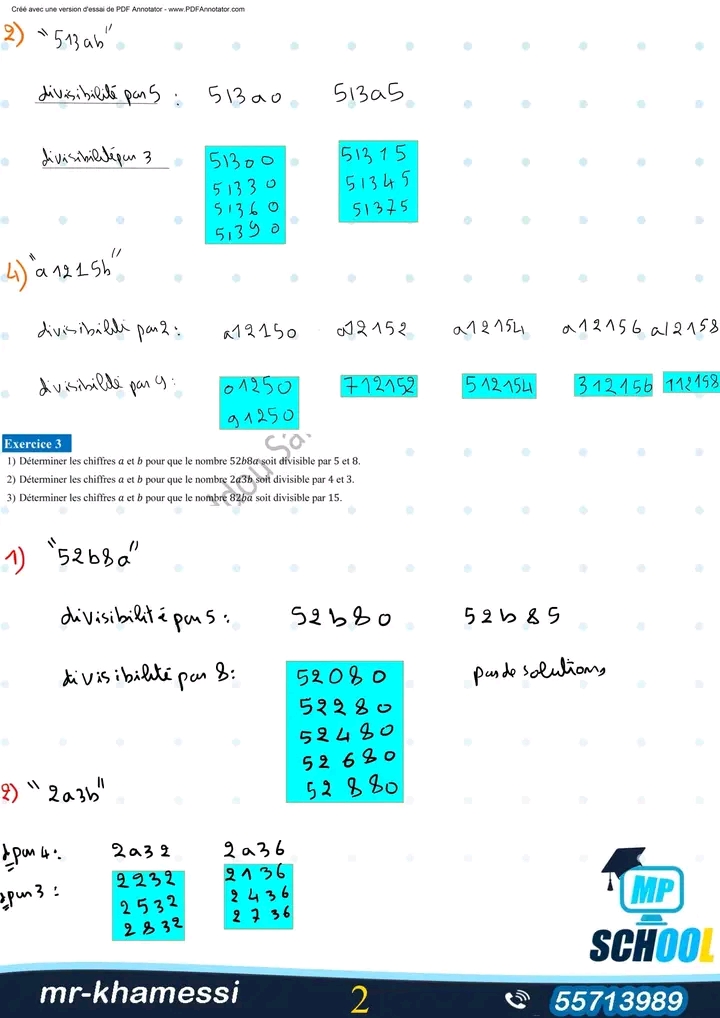 Créé avec une version d'essai de PDF Annotator - www.PDFAnnotator.com
2) "513ab"
divisibilité par 5 : 513a0 513a5
divisibilité par 3 51300 51315
51330 51345
51360 51375
51390
4) "a1215b"
divisibilité par 2: a12150 a12152 a12154 a12156 a12158
divisibilité par 9: 01250 712152 512154 312156 112158
91250
Exercice 3
1) Déterminer les chiffres a et b pour que le nombre 52b8a soit divisible par 5 et 8.
2) Déterminer les chiffres a et b pour que le nombre 2a3b soit divisible par 4 et 3.
3) Déterminer les chiffres a et b pour que le nombre 82ba soit divisible par 15.
1) "52b8a"
divisibilité par 5: 52b80 52b85
divisibilité par 8: 52080 pas de solutions
52280
52480
52680
52880
2) "2a3b"
par 4: 2a32 2a36
par 3: 2232 2136
2532 2436
2832 2736
MP
SCHOOL
mr-khamessi 2 55713989